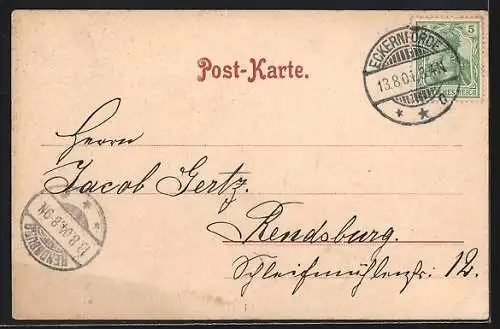 Post-Karte.
ECKERNFÖRDE
13.8.04.
5
Herrn
Jacob Gertz.
Rendsburg.
Schleifmühlenstr: 12.
RENDSBURG
13.8.04. 8-9N